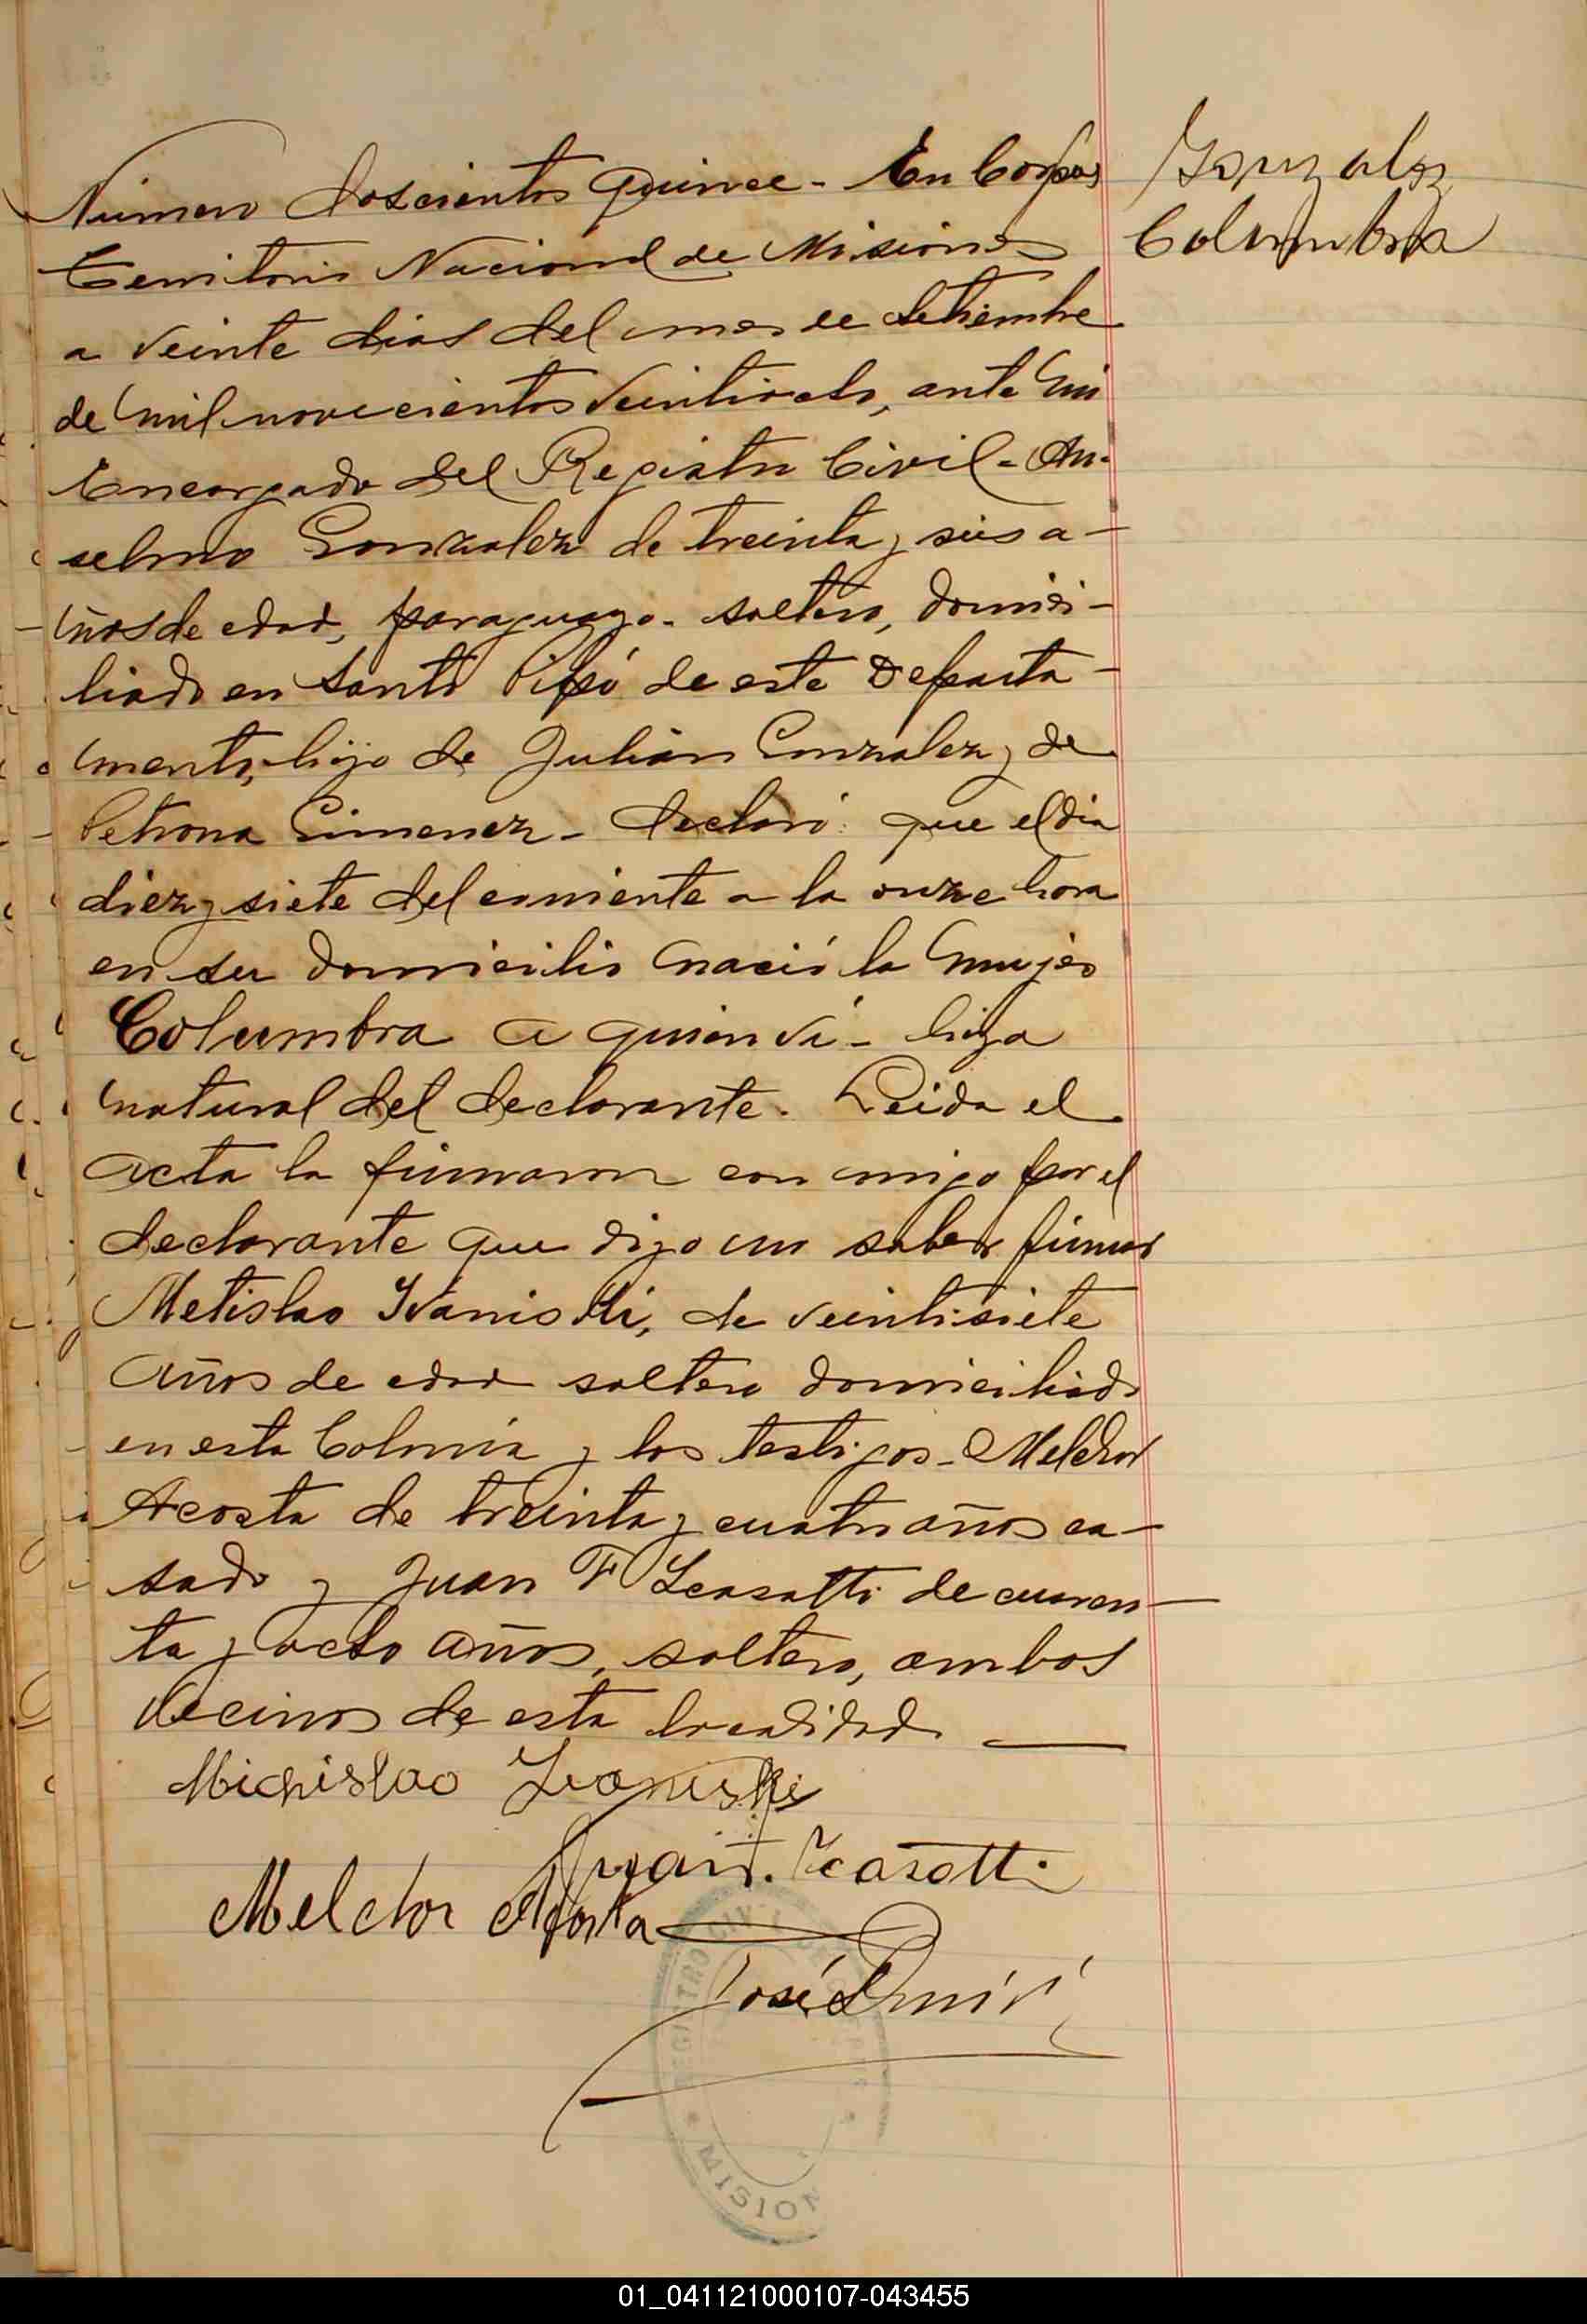 Número doscientos quince - En Corpus
Territorio Nacional de Misiones
a veinte dias del mes de Setiembre
de mil novecientos veintiocho, ante mi
Encargado del Registro Civil - An-
selmo Gonzalez de treinta y seis a-
ños de edad, paraguayo - soltero, domici-
liado en Santo Pipó de este Departa-
mento, hijo de Julian Gonzalez y de
Petrona Gimenez - declaró: que el dia
diez y siete del corriente a la onze hora
en su domicilio nació la mujer
Columbra a quien ví - hija
natural del declarante. Leida el
acta la firmaron con migo por el
declarante que dijo no saber firmar
Metislao Ivaniski, de veintisiete
años de edad soltero domiciliado
en esta Colonia y los testigos - Melchor
Acosta de treinta y cuatro años ca-
sado y Juan F Scasatti de cuaren-
ta y ocho años, soltero, ambos
vecinos de esta localidad
Gonzalez
Columbra
Michislao Ivaniski
Juan F. Scasotti
Melchor Acosta
José
REGISTRO CIVIL
MISION
01_041121000107-043455